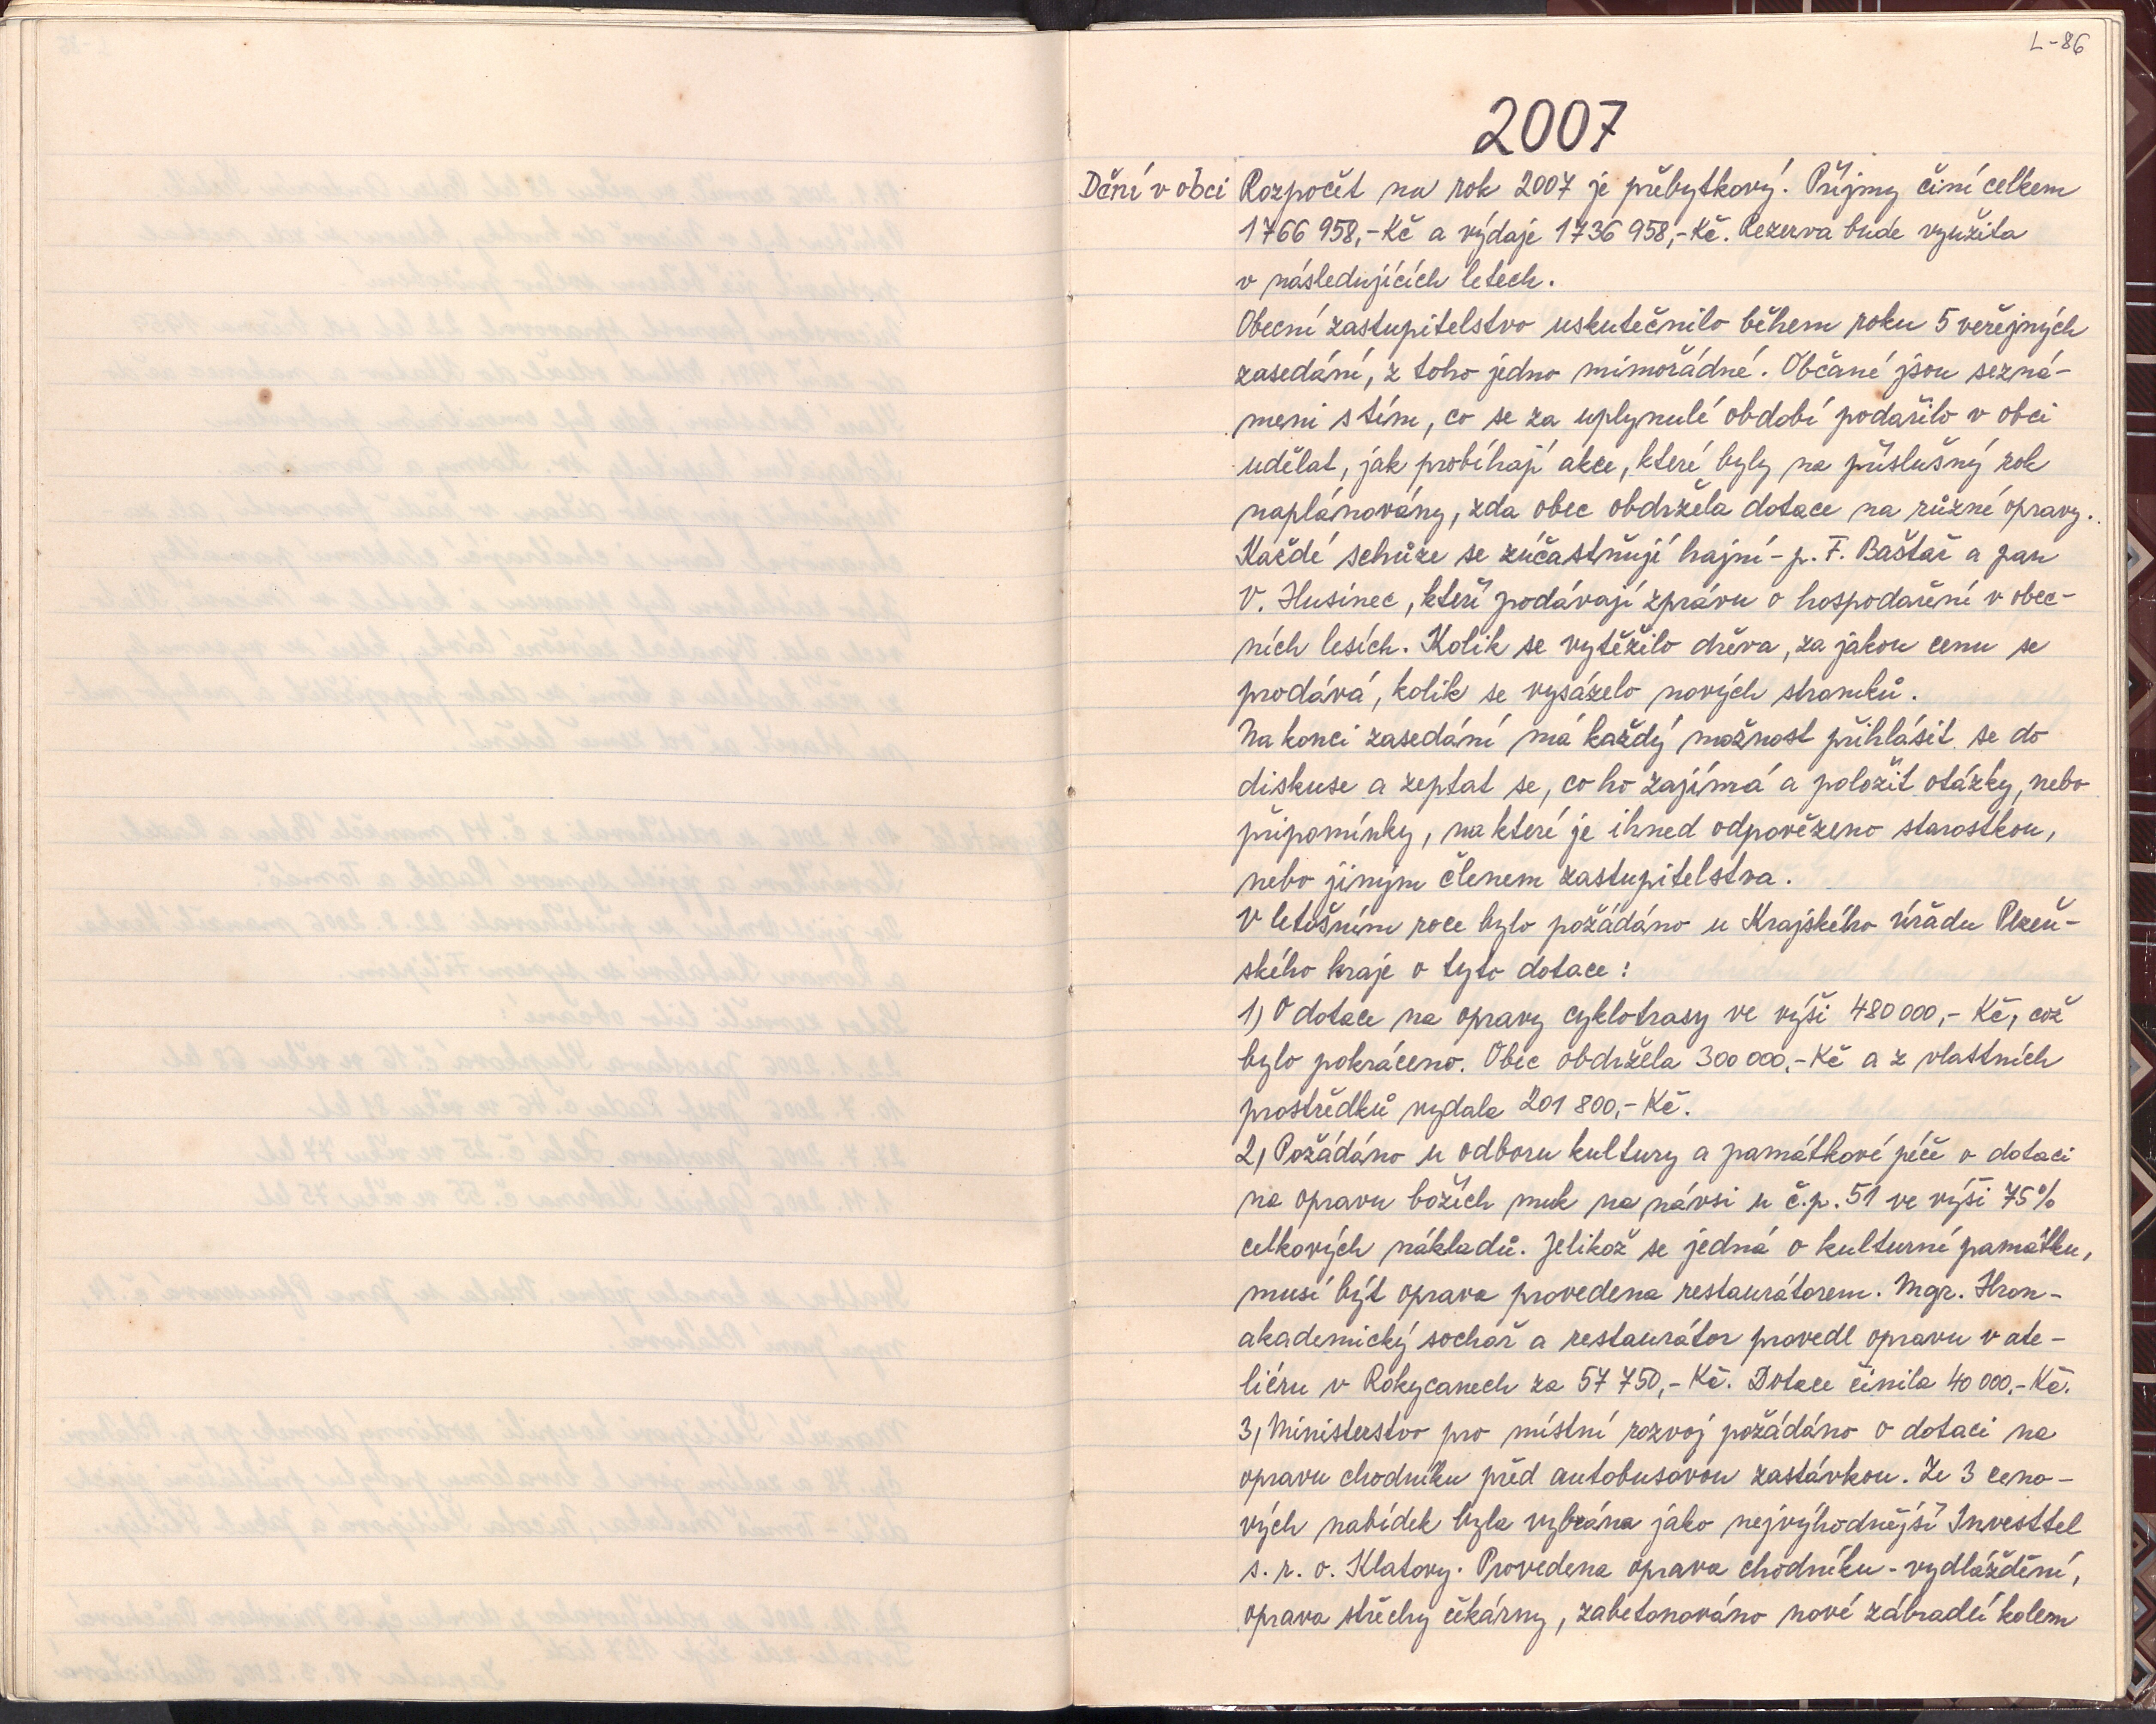 L-86
2007
Dění v obci Rozpočet na rok 2007 je přebytkový. Příjmy činí celkem
1 766 958,- Kč a výdaje 1 736 958,- Kč. Rezerva bude využita
v následujících letech.
Obecní zastupitelstvo uskutečnilo během roku 5 veřejných
zasedání, z toho jedno mimořádné. Občané jsou sezná-
meni s tím, co se za uplynulé období podařilo v obci
udělat, jak probíhají akce, které byly na příslušný rok
naplánovány, zda obec obdržela dotace na různé opravy.
Každé schůze se zúčastňují hajní - p. F. Baštař a pan
V. Husinec, kteří podávají zprávu o hospodaření v obec-
ních lesích. Kolik se vytěžilo dřeva, za jakou cenu se
prodává, kolik se vysázelo nových stromků.
Na konci zasedání má každý možnost přihlásit se do
diskuse a zeptat se, co ho zajímá a položit otázky, nebo
připomínky, na které je ihned odpovězeno starostkou,
nebo jiným členem zastupitelstva.
V letošním roce bylo požádáno u Krajského úřadu Plzeň-
ského kraje o tyto dotace:
1) O dotace na opravy cyklotrasy ve výši 480 000,- Kč, což
bylo pokráceno. Obec obdržela 300 000,- Kč a z vlastních
prostředků vydala 201 800,- Kč.
2) Požádáno u odboru kultury a památkové péče o dotaci
na opravu božích muk na návsi u č.p. 51 ve výši 75%
celkových nákladů. Jelikož se jedná o kulturní památku,
musí být oprava provedena restaurátorem. Mgr. Hron -
akademický sochař a restaurátor provedl opravu v ate-
liéru v Rokycanech za 57 750,- Kč. Dotace činila 40 000,- Kč.
3) Ministerstvo pro místní rozvoj požádáno o dotaci na
opravu chodníku před autobusovou zastávkou. Ze 3 ceno-
vých nabídek byla vybrána jako nejvýhodnější Investtel
s. r. o. Klatovy. Provedena oprava chodníku - vydláždění,
oprava střechy čekárny, zabetonováno nové zábradlí kolem